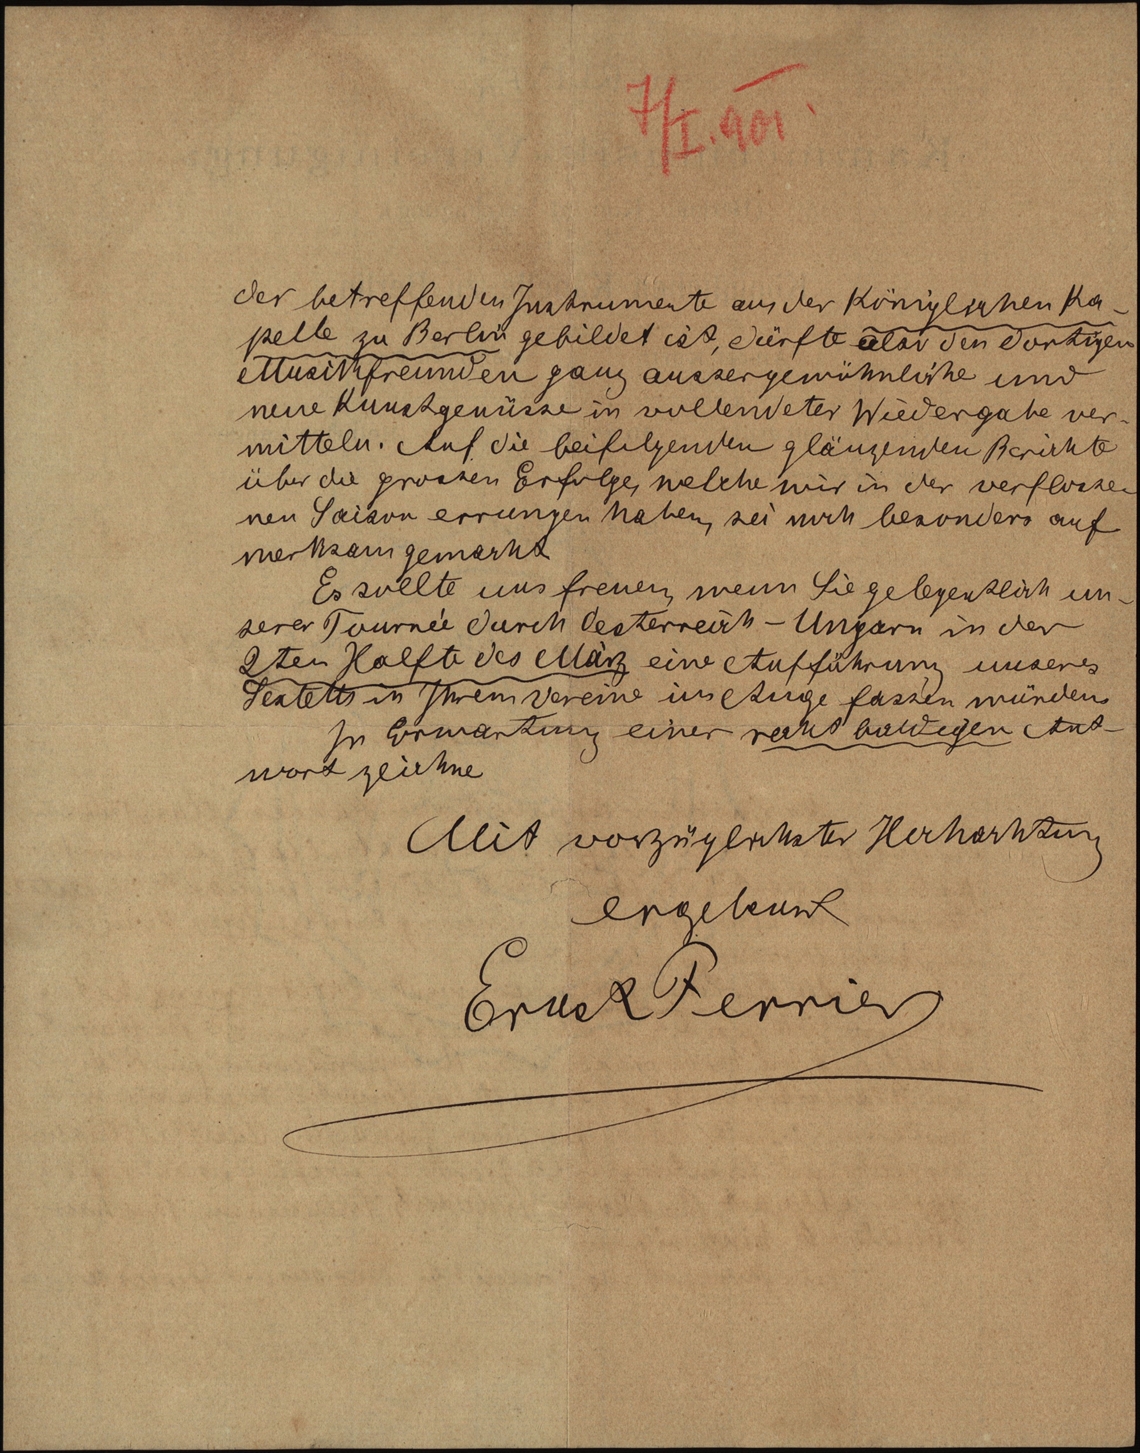 7/I. 901.
der betreffenden Instrumente aus der Königlichen Ka-
pelle zu Berlin gebildet ist, dürfte also den dortigen
Musikfreunden ganz aussergewöhnliche und
neue Kunstgenüsse in vollendeter Wiedergabe ver-
mitteln. Auf die beifolgenden glänzenden Berichte
über die grossen Erfolge, welche wir in der verflosse-
nen Saison errungen haben, sei noch besonders auf
merksam gemacht.
Es sollte uns freuen, wenn Sie gelegentlich un-
serer Tournée durch Oesterreich-Ungarn in der
2ten Hälfte des März eine Aufführung unseres
Sextetts in Ihrem Vereine ins Auge fassen würden.
In Erwartung einer recht baldigen Ant-
wort zeichne
Mit vorzüglichster Hochachtung
ergebenst
Ernst Ferrier